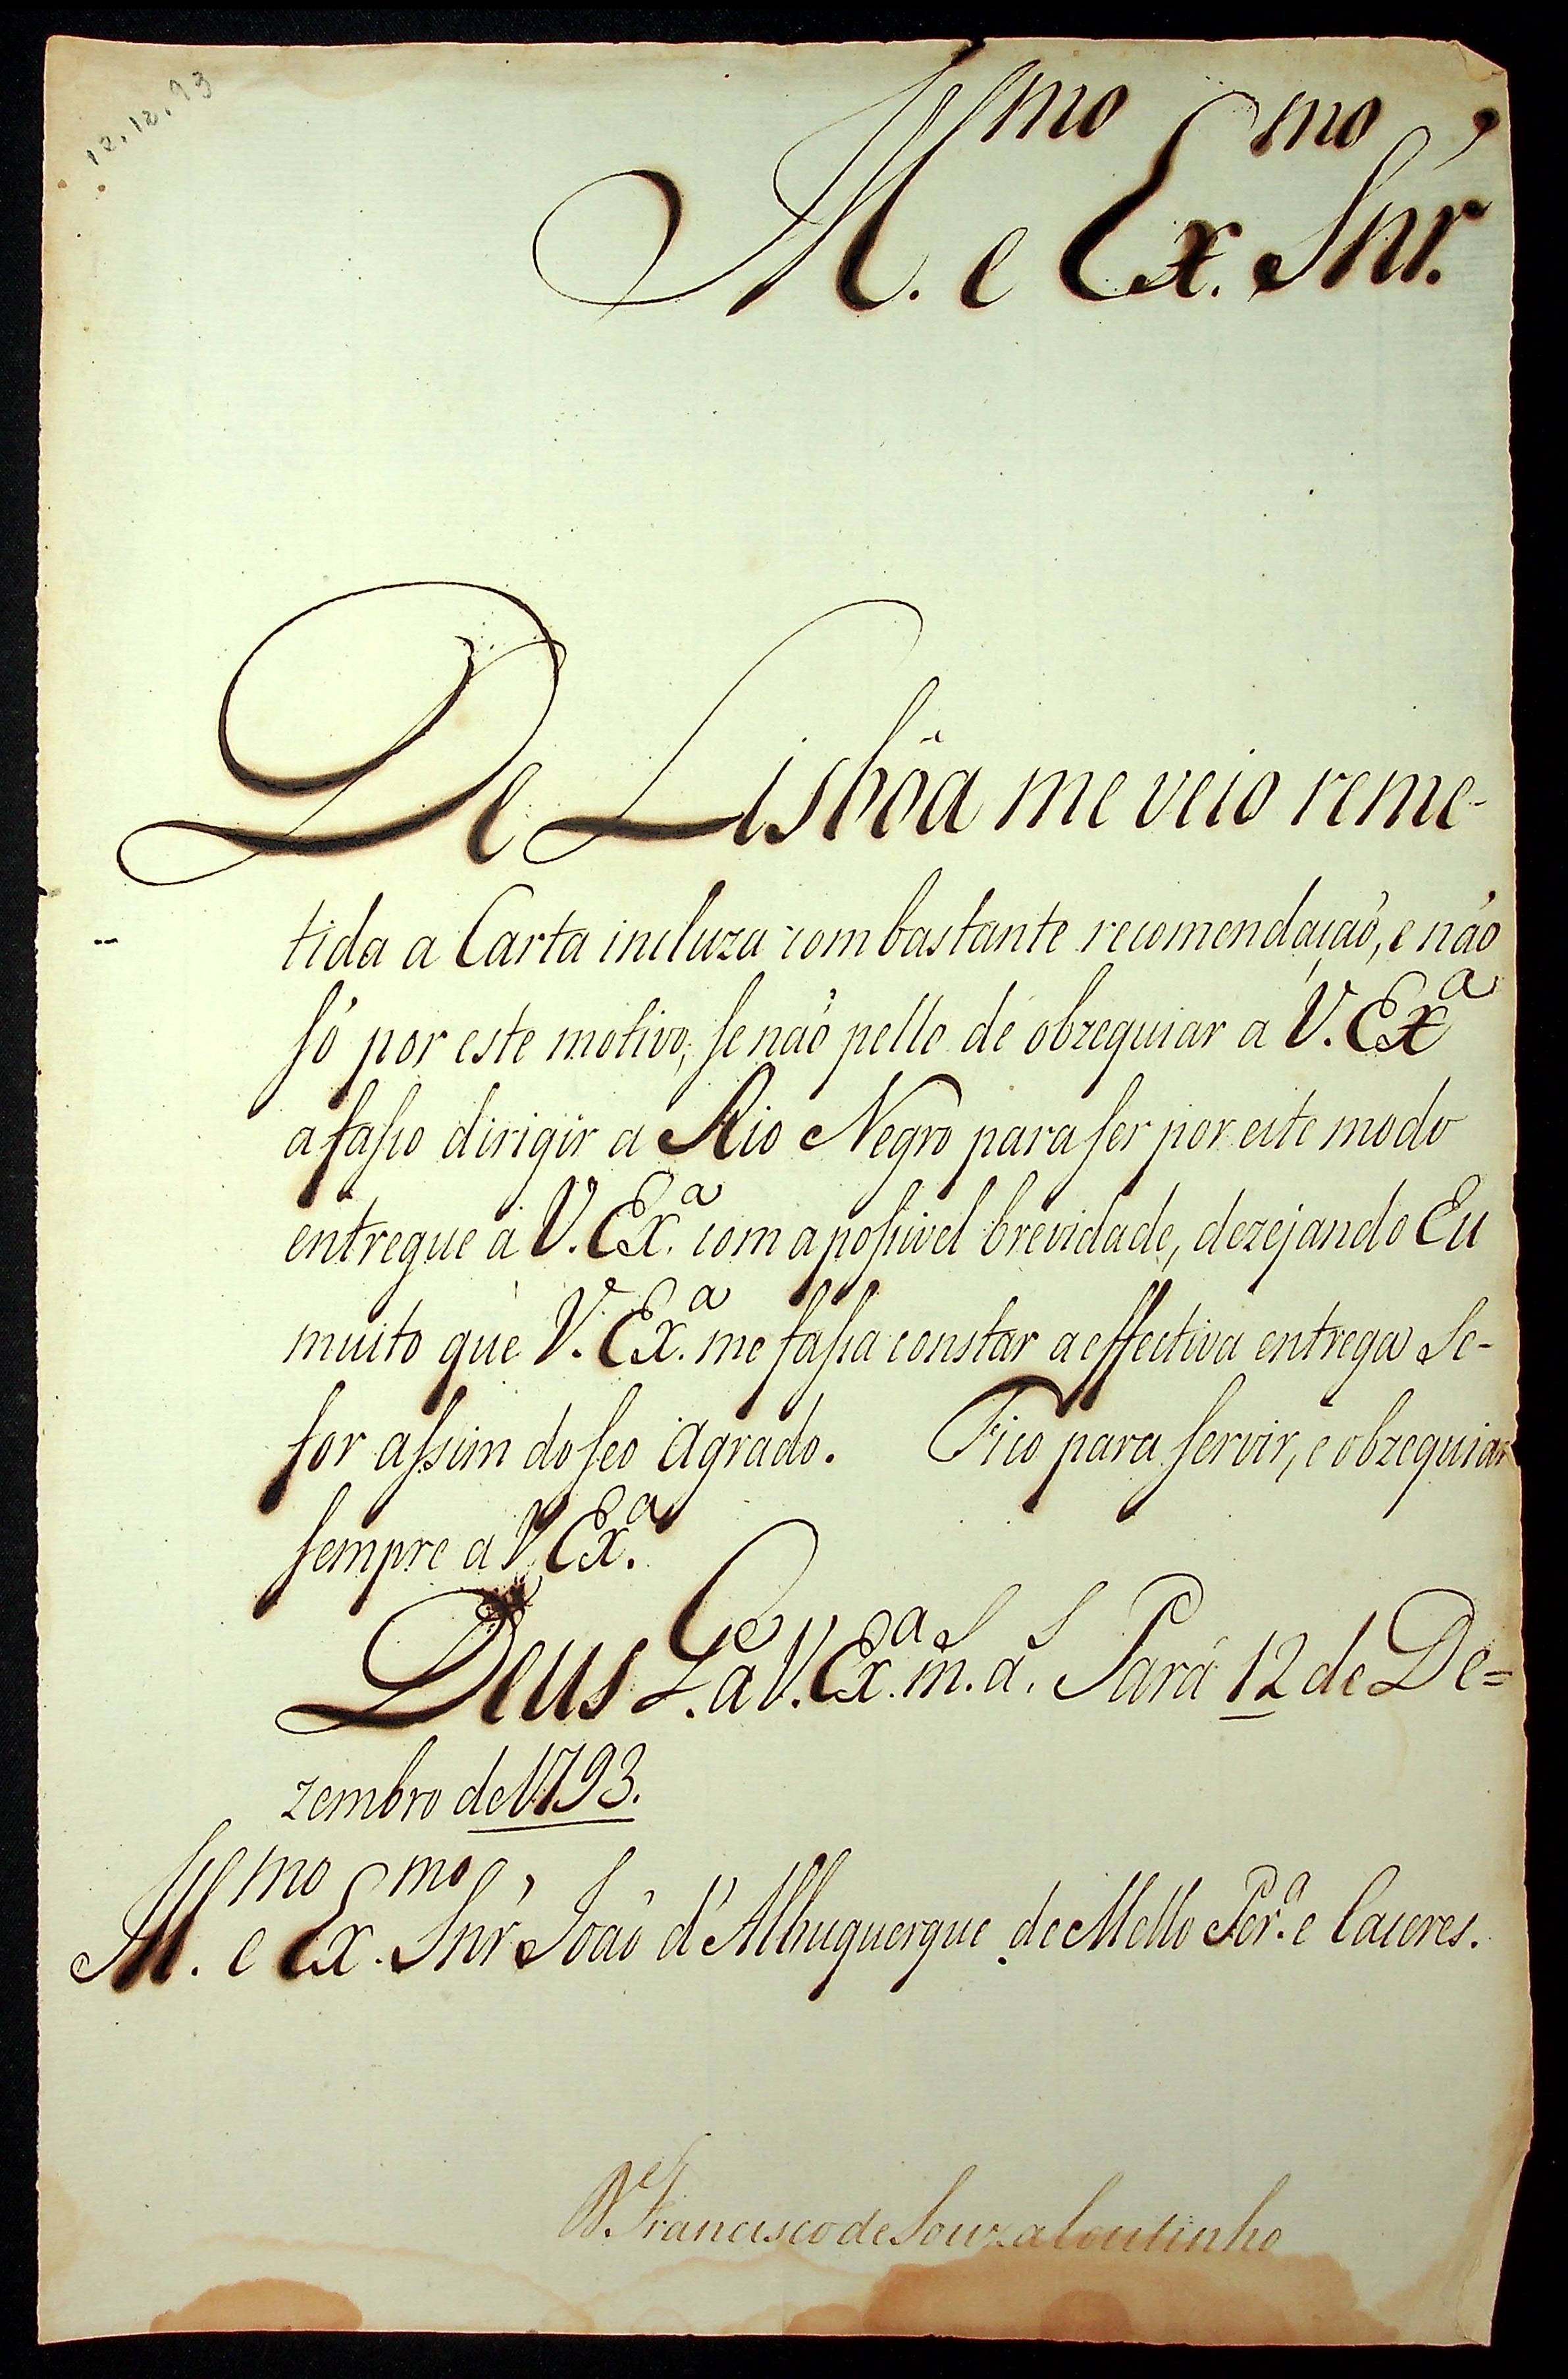 12.12.93
Ill.mo e Ex.mo Snr.
De Lisbôa me veio reme-
tida a Carta incluza com bastante recomendação, e não
só por este motivo, se não pello de obzequiar a V. Exa
a fasso dirigir a Rio Negro para ser por este modo
entregue a V. Ex.a com a possivel brevidade, dezejando Eu
muito que V. Ex.a me fassa constar a effectiva entrega se-
for assim do seo agrado. Fico para servir, e obzequiar
sempre a V Ex.a
Deus G.e a V. Ex.a m.s a.s Pará 12 de De=
zembro de 1793.
Ill.mo e Ex.mo Snr' João d'Albuquerque de Mello Per.a e Caceres.
D. Francisco de Souza Coutinho